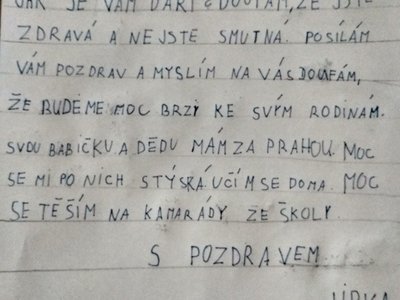 JAK JE VÁM DAŘÍ? DOUFÁM, ŽE JSTE
ZDRAVÁ A NEJSTE SMUTNÁ. POSÍLÁM
VÁM POZDRAV A MYSLÍM NA VÁS DOUFÁM,
ŽE BUDEME MOC BRZY KE SVÝM RODINÁM.
SVOU BABIČKU A DĚDU MÁM ZA PRAHOU. MOC
SE MI PO NICH STÝSKÁ. UČÍM SE DOMA. MOC
SE TĚŠÍM NA KAMARÁDY ZE ŠKOLY.
S POZDRAVEM
JIRKA